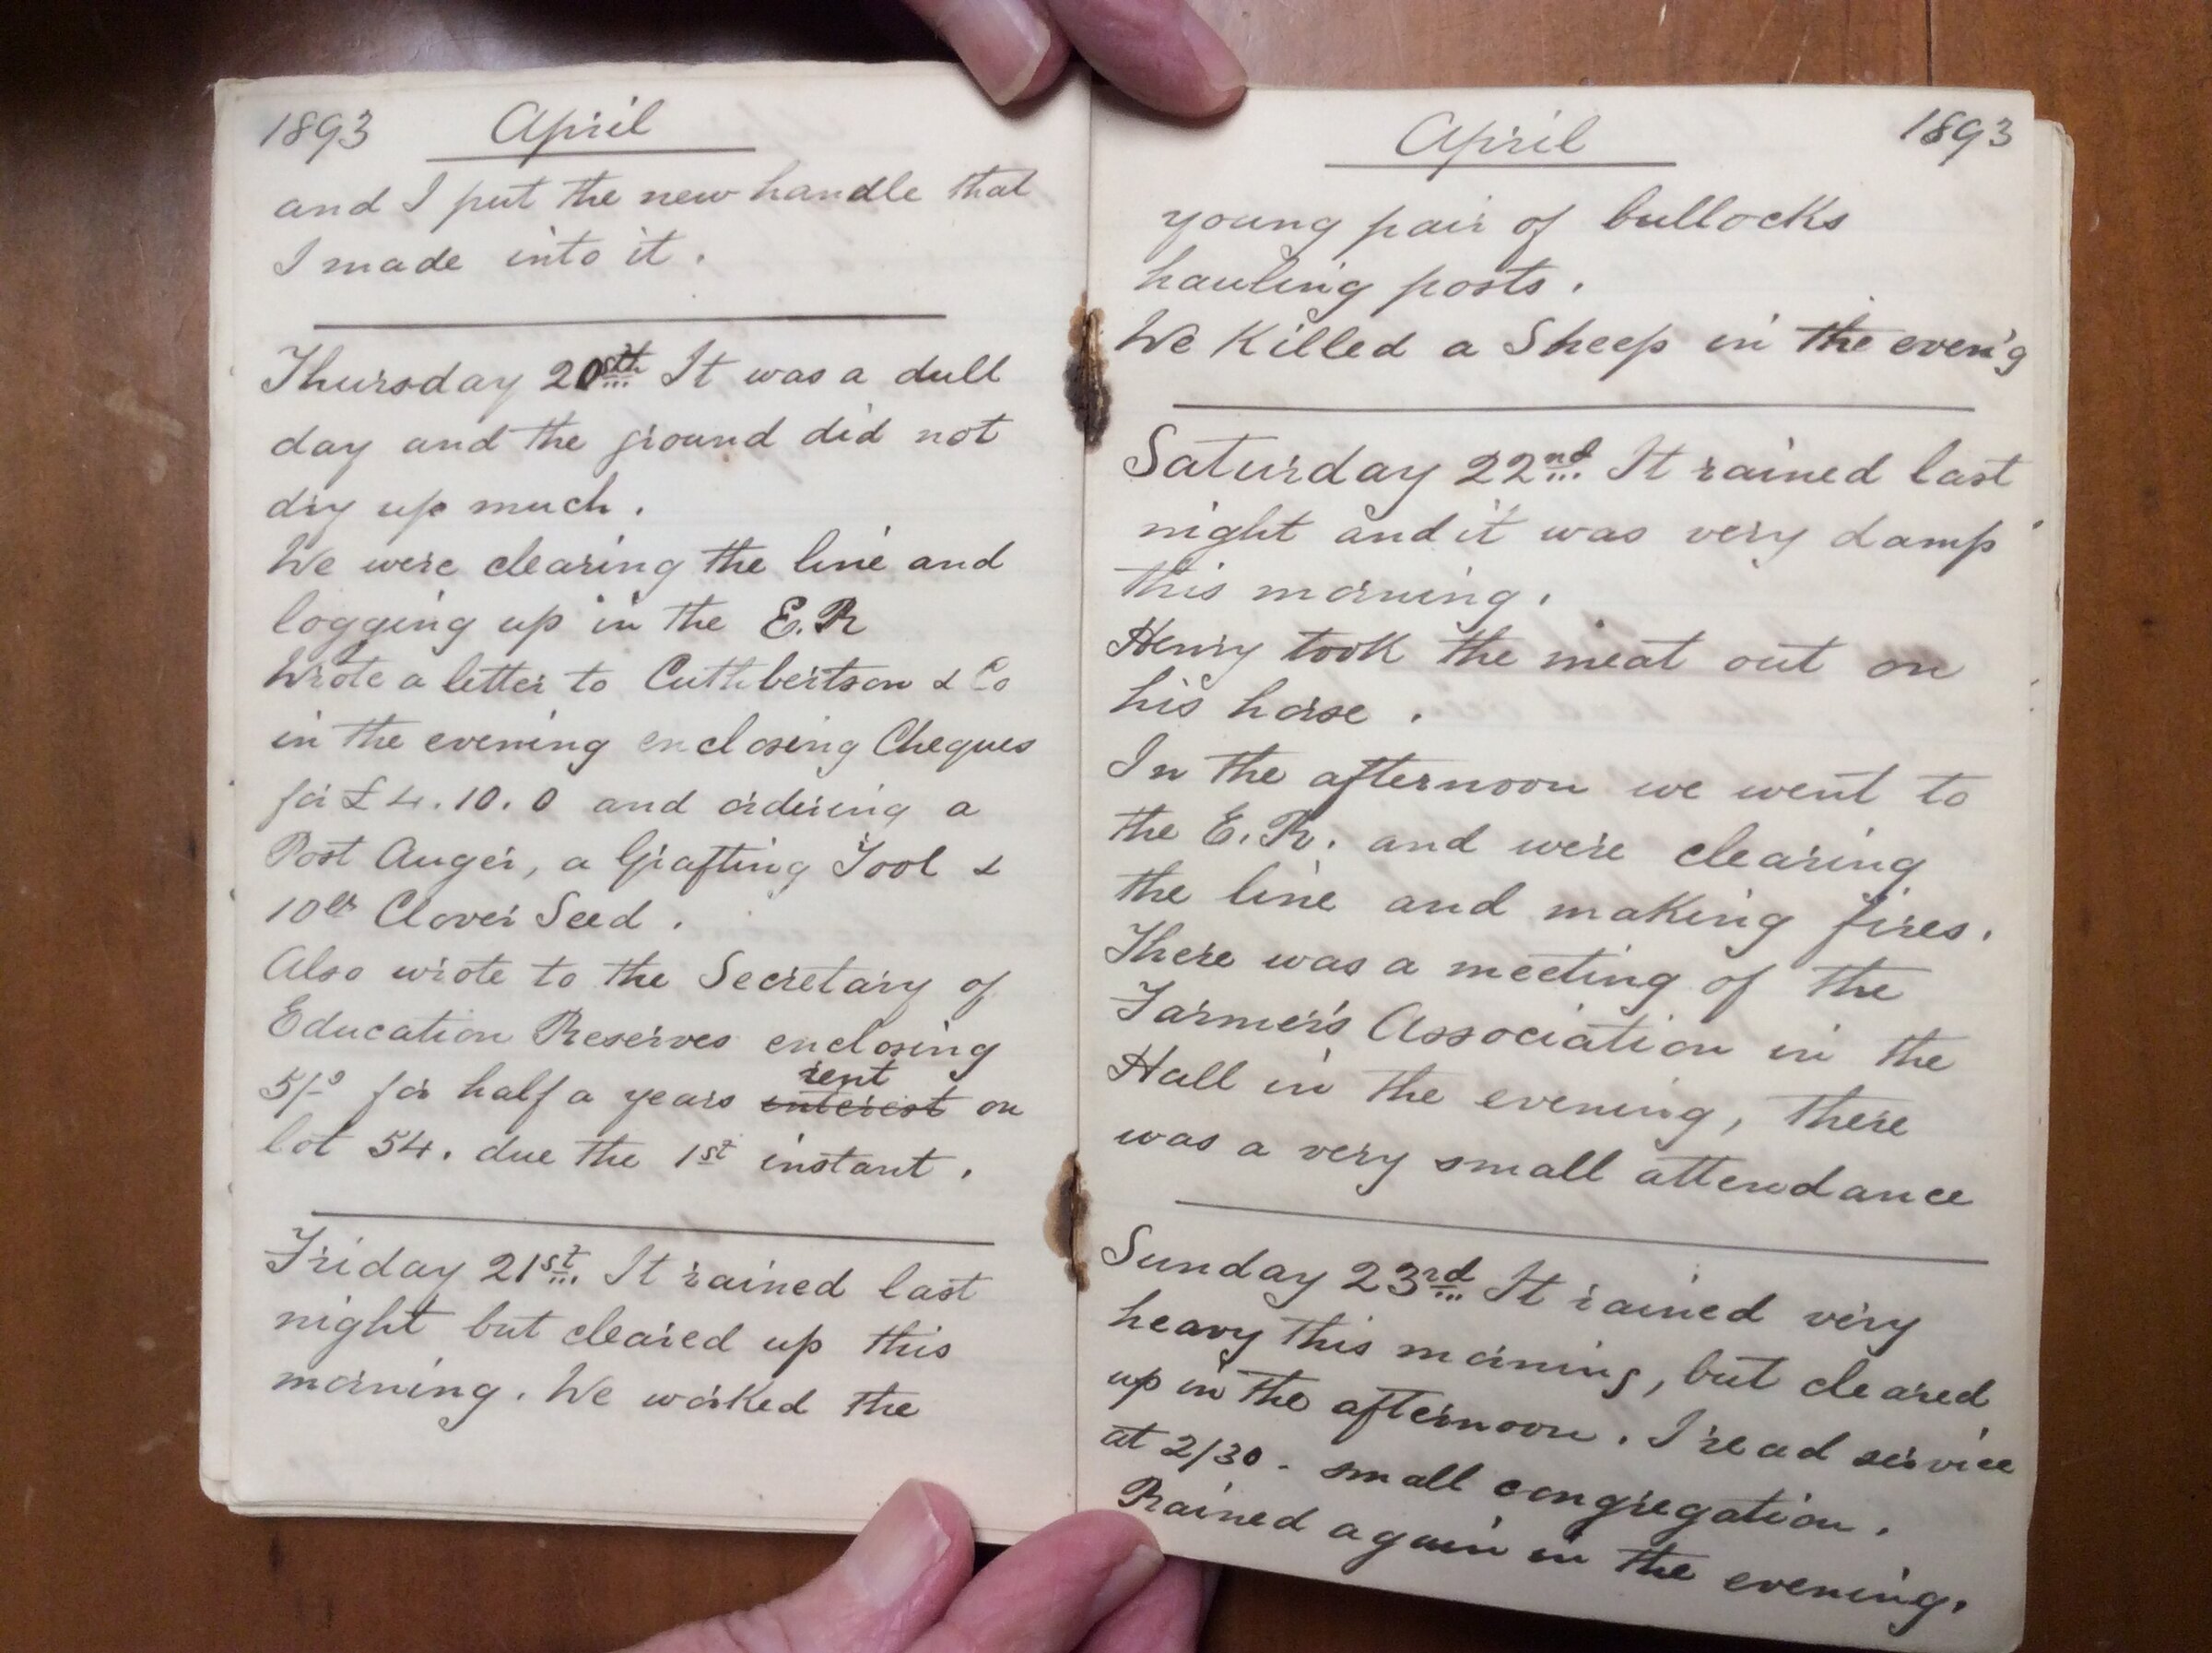 1893 April
and I put the new handle that
I made into it.
Thursday 20th It was a dull
day and the ground did not
dry up much.
We were clearing the line and
logging up in the E.R
Wrote a letter to Cuthbertson & Co
in the evening enclosing Cheques
for £4.10.0 and ordering a
Post Auger, a Grafting Tool &
10lb Clover Seed.
Also wrote to the Secretary of
Education Reserves enclosing
rent
5/-s for half a years interest on
lot 54. due the 1st instant.
Friday 21st. It rained last
night but cleared up this
morning. We worked the
April 1893
young pair of bullocks
hauling posts.
We Killed a Sheep in the even'g
Saturday 22nd. It rained last
night and it was very damp
this morning.
Henry took the meat out on
his horse.
In the afternoon we went to
the E.R. and were clearing
the line and making fires.
There was a meeting of the
Farmer's Association in the
Hall in the evening, there
was a very small attendance
Sunday 23rd It rained very
heavy this morning, but cleared
up in the afternoon. I read service
at 2/30 - small congregation.
Rained again in the evening.